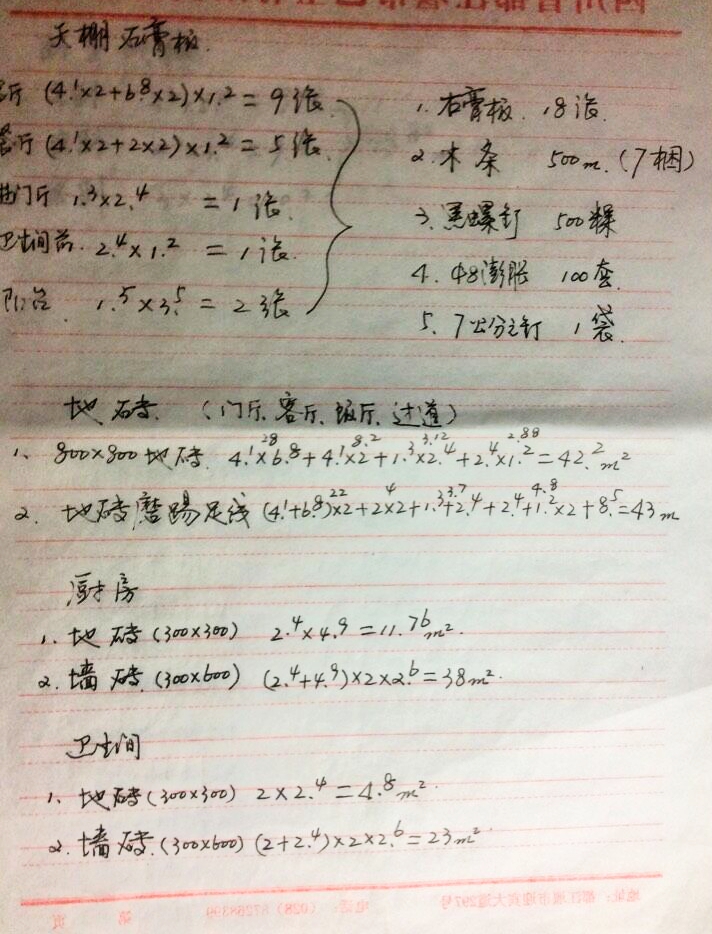 天棚石膏板.
客厅 (4.1×2+6.8×2)×1.2=9张
餐厅 (4.1×2+2×2)×1.2=5张.
进门厅 1.3×2.4 =1张.
卫生间前. 2.4×1.2 =1张.
阳台. 1.5×3.5=2张
1.石膏板. 18张.
2.木条 500m.(7捆)
3.黑螺钉 500颗
4.Φ8膨胀 100套.
5.7公分钉 1袋.
地砖.(门厅.客厅.饭厅.过道)
28 8.2 3.12 2.88
1、800×800地砖. 4.1×6.8+4.1×2+1.3×2.4+2.4×1.2=42.2m²
22 4 3.7 4.8
2.地砖磨踢足线 (4.1+6.8)×2+2×2+1.3+2.4+2.4+1.2×2+8.5=43m
厨房
1.地砖(300×300) 2.4×4.9=11.76m².
2.墙砖.(300×600) (2.4+4.9)×2×2.6=38m².
卫生间
1、地砖(300×300) 2×2.4=4.8m².
2.墙砖.(300×600) (2+2.4)×2×2.6=23m².
地址:都江堰市迎宾大道297号 电话:(028)87268399 第 页